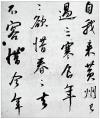 自我來黃州已
過三寒食年
々欲惜春々去
不容惜今年